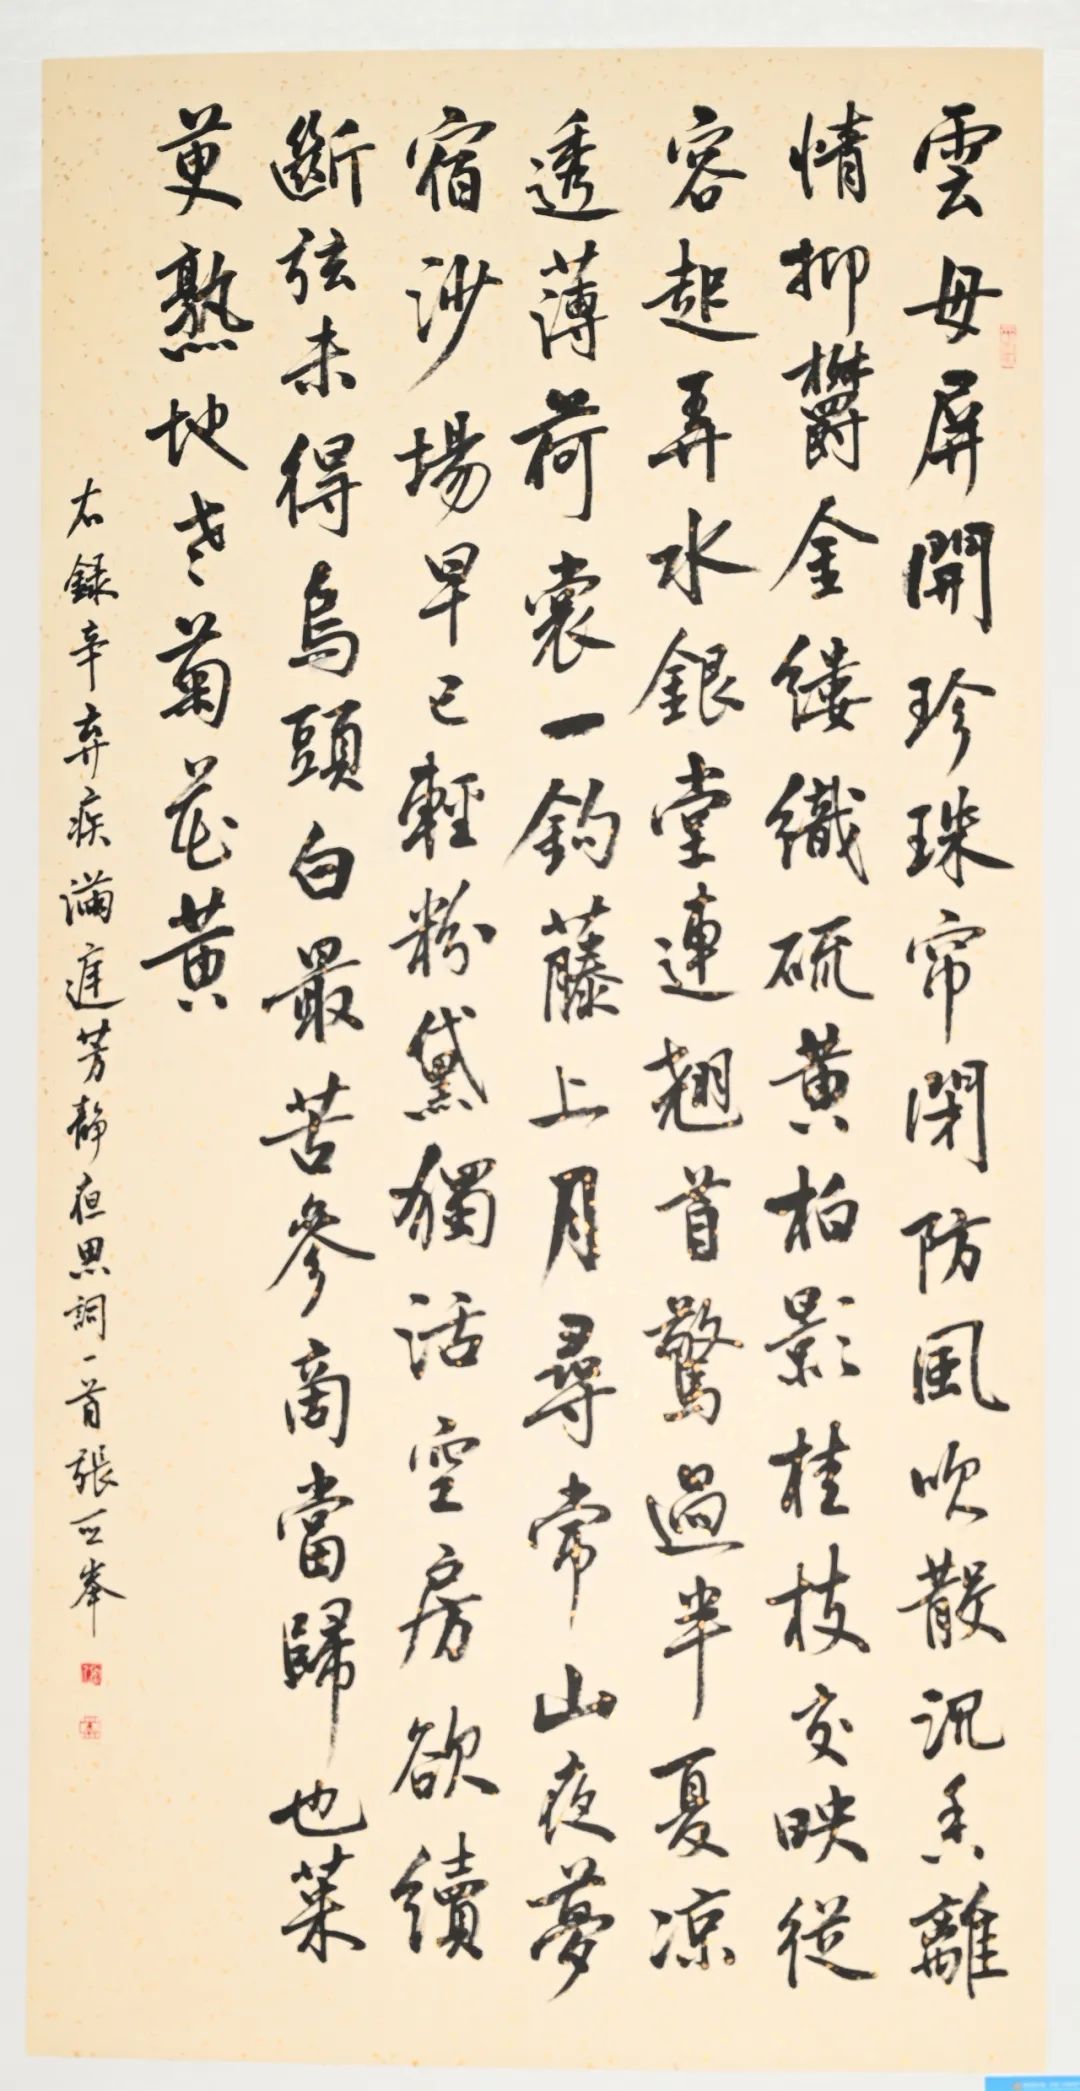 雲母屏開珍珠帘閉防風吹散沉香離
情抑鬱金縷織硫黄柏影桂枝交映從
容起弄水銀堂連翹首驚過半夏凉
透薄荷裳一鈎藤上月尋常山夜夢
宿沙場早已輕粉黛獨活空房欲續
斷弦未得烏頭白最苦參商當歸也茱
萸熟地老菊花黄
右録辛弃疾滿庭芳静夜思詞一首張